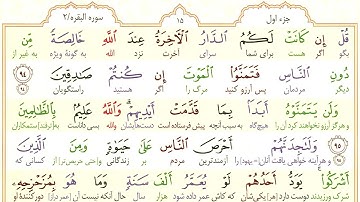 جزء اول ۱۵ سوره البقره/۲
قُلْ إِن كَانَتْ لَكُمُ الدَّارُ الْآخِرَةُ عِندَ اللَّهِ خَالِصَةً مِّن
بگو اگر هست برای شما سرای آخرت نزد الله به گونهٔ ویژه به غیر از
دُونِ النَّاسِ فَتَمَنَّوُا الْمَوْتَ إِن كُنتُمْ صَادِقِينَ ۹۴
دیگر مردمان مرگ را اگر هستید راستگویان
وَلَن يَتَمَنَّوْهُ أَبَدًا بِمَا قَدَّمَتْ أَيْدِيهِمْ وَاللَّهُ عَلِيمٌ بِالظَّالِمِينَ
و هرگز آرزو نخواهند کرد آن را هیچ‌گاه به سبب آنچه پیش فرستاده است دست‌هایشان و الله بسی داناست به ستمکاران
۹۵ وَلَتَجِدَنَّهُمْ أَحْرَصَ النَّاسِ عَلَىٰ حَيَاةٍ وَمِنَ الَّذِينَ
و هرآینه خواهی یافت آنان - یهود - را آزمندترین مردم بر زندگانی و حتی حریص‌تر از کسانی که
أَشْرَكُوا يَوَدُّ أَحَدُهُمْ لَوْ يُعَمَّرُ أَلْفَ سَنَةٍ وَمَا هُوَ بِمُزَحْزِحِهِ
شرک ورزیدند دوست دارد هر یکی‌شان که کاش عمر داده شود هزار سال حال آنکه نیست آن دورکنندهٔ او